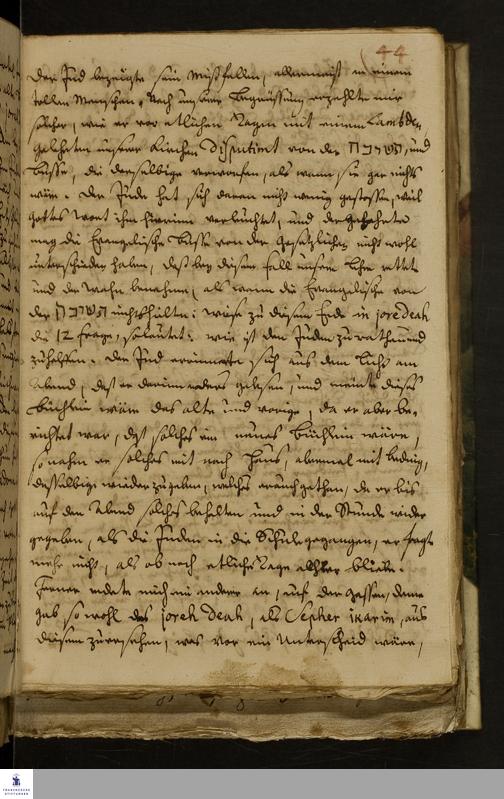 44
Der Jud bezeugte sein Mißfallen, allermeist an einem
tollen Menschen. Nach unserer Begrüssung erzehlte mir
solcher, wie er vor etlichen Tagen mit einem Lambden,
Gelehrten unserer Kirchen disputirt von der תשובה, und
Busse, die derselbige verworfen, als wann sie gar nichts
wäre. Der Jude hat sich daran nicht wenig gestossen, weil
Gottes Wort ihm hierinn verleuchtet, und der Gelehrte
mag die Evangelische Busse von der Gesetzlichen nicht wohl
unterschieden haben, daß bey diesem fall unsere Lehr rettete
und der Wahn benehme, als wenn die Evangelische von
der תשובה nichts hielte: wiese zu diesem Ende in jore deah
die 12 frage, so lautet: wie ist den Juden zu rathen und
zu helffen. Der Jud erinnerte sich aus dem licht am
Abend, daß er darinn anders gelesen, und meinte dieses
Büchlein wäre das alte und vorige, da er aber be-
richtet war, daß solches ein neues Büchlein wäre,
so nahm er solches mit nach Haus, abermal mit beding,
dasselbige wieder zu geben, welches er auch gethan, da er bis
auf den Abend solches behalten und in der Stunde wieder
gegeben, als die Juden in die Schule gegangen, er fragte
mehr nicht, als ob noch etliche Tage allhier bliebe.
Ferner redete mich ein anderer an, auf der Gassen, dann
gab so wohl das joreh deah, als Sepher ikarim, aus
diesem zu ersehen, was vor ein Unterscheid wäre,
FRANCKESCHE
STIFTUNGEN